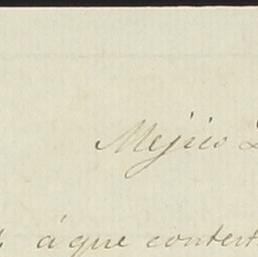 Mejico
á que contest